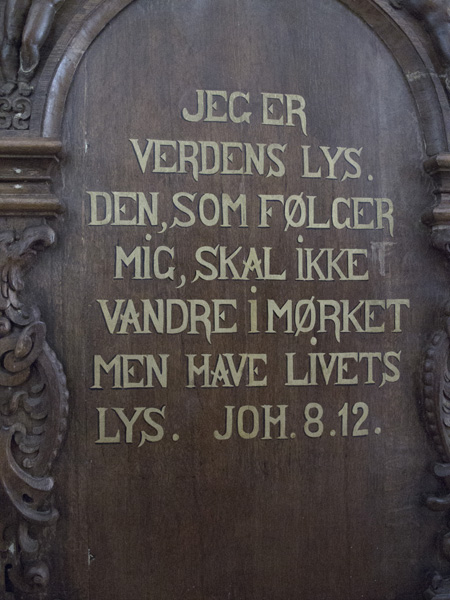 JEG ER
VERDENS LYS.
DEN, SOM FØLGER
MIG, SKAL IKKE
VANDRE I MØRKET
MEN HAVE LIVETS
LYS. JOH. 8.12.